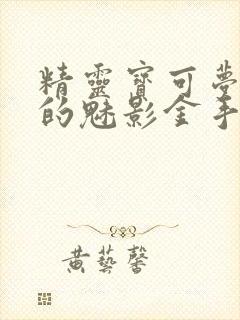 精靈寶可夢
的魅影金手
黃藝馨